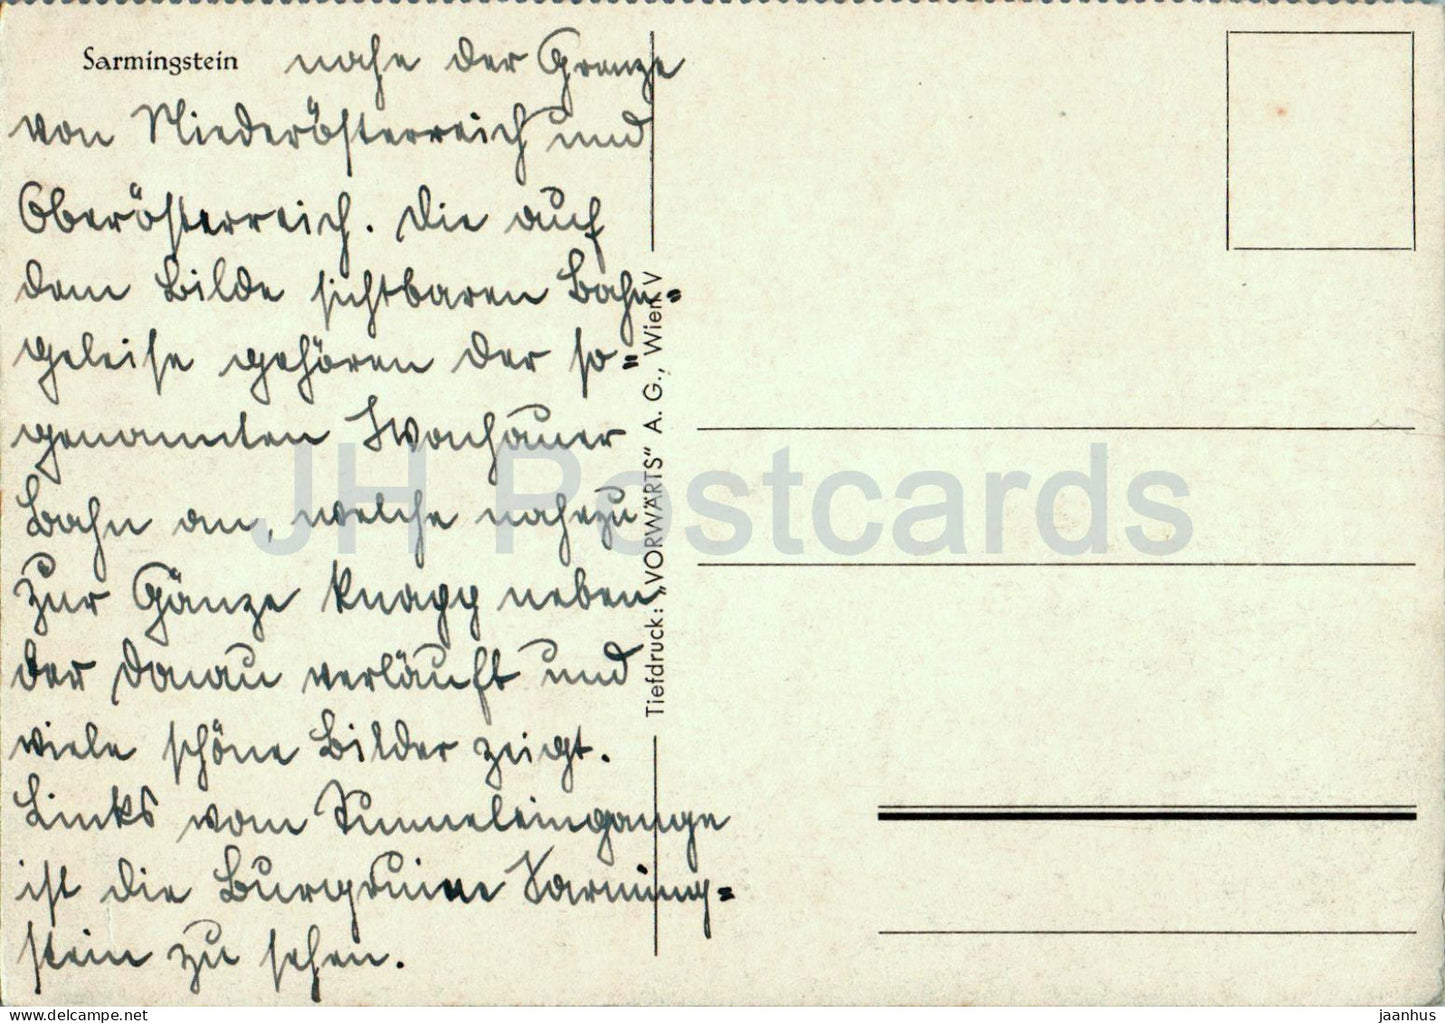 Sarmingstein nahe der Grenze
von Niederösterreich und
Oberösterreich. Die auf
dem Bilde sichtbaren Bahn=
geleise gehören der so=
genannten Wachauer
Bahn an, welche nahezu
zur Gänze knapp neben
der Donau verläuft und
viele schöne Bilder zeigt.
Links vom Tunneleingange
ist die Burgruine Sarming=
stein zu sehen.
Tiefdruck: „VORWÄRTS" A. G., Wien V
JH Postcards
delcampe.net
jaanhus